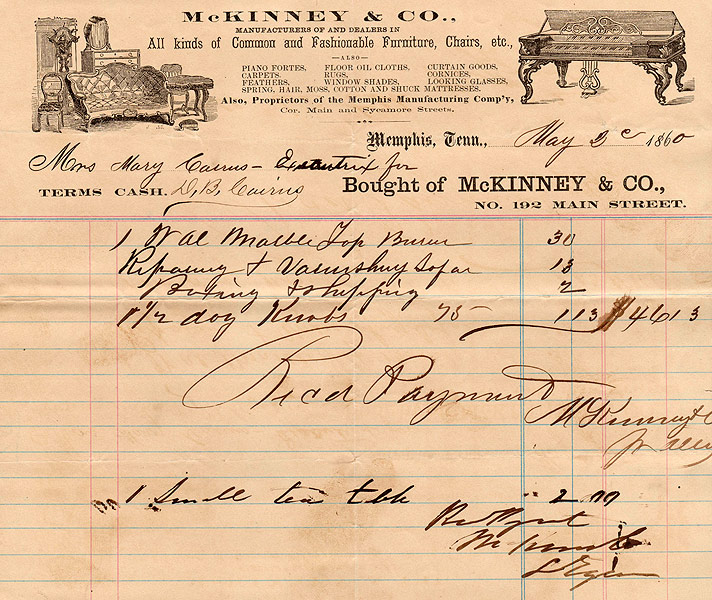 McKINNEY & CO.,
MANUFACTURERS OF AND DEALERS IN
All kinds of Common and Fashionable Furniture, Chairs, etc.,
—ALSO—
PIANO FORTES. FLOOR OIL CLOTHS. CURTAIN GOODS.
CARPETS. RUGS. CORNICES.
FEATHERS. WINDOW SHADES. LOOKING GLASSES,
SPRING, HAIR, MOSS, COTTON AND SHUCK MATTRESSES.
Also, Proprietors of the Memphis Manufacturing Comp'y,
Cor. Main and Sycamore Streets.
Memphis, Tenn., May 2 1860
Mrs Mary Cairns - Executrix for
TERMS CASH. D. B. Cairns
Bought of McKINNEY & CO.,
NO. 192 MAIN STREET.
1 Wal Marble Top Bureau 30
Repairing & Varnishing Sofa 13
Boxing & Shipping 2
1 1/2 doz Knobs 75 1 13 $46 13
Recd Payment
McKinney & C
1 Small tea table 2